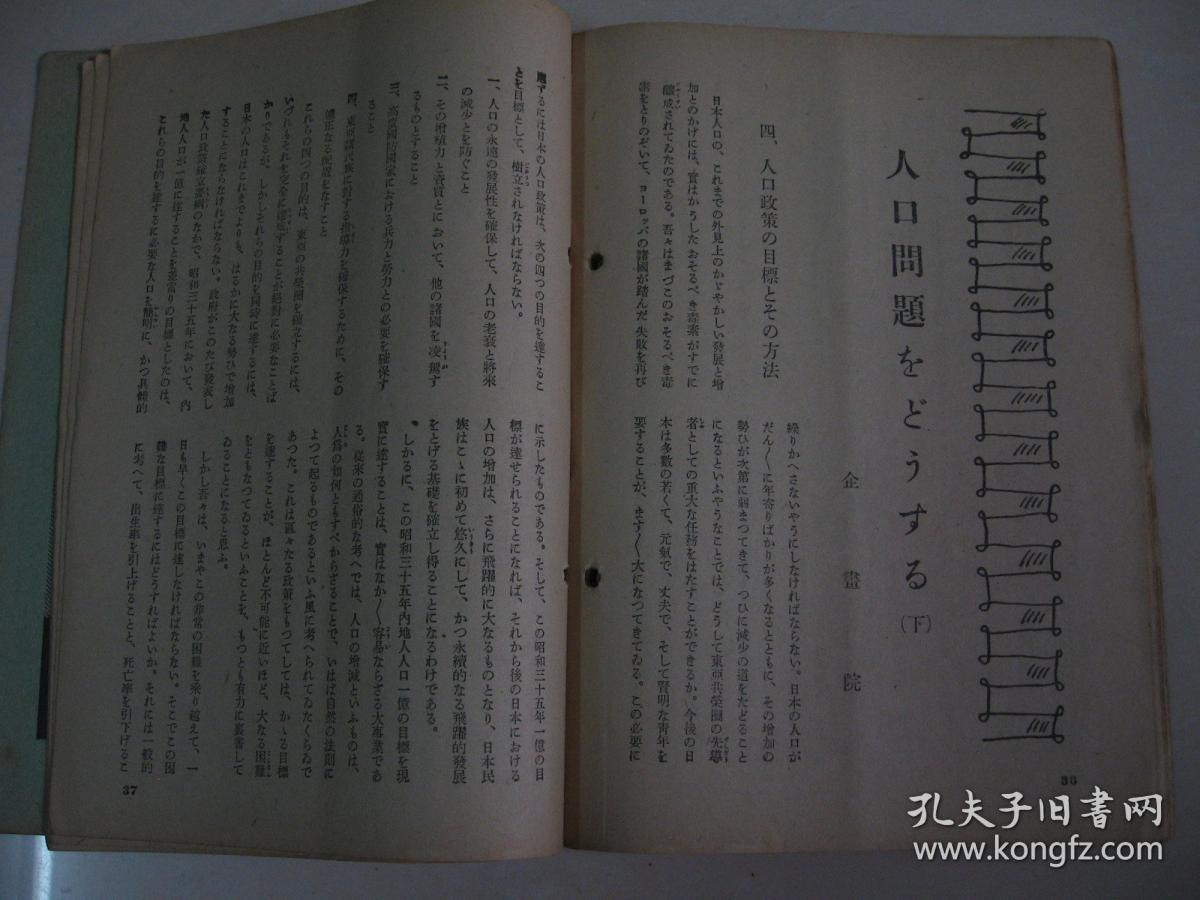 人口問題をどうする(下)
企畫院
四、人口政策の目標とその方法
日本人口の、これまでの外見上のかゞやかしい發展と增
加とのかげには、實はかうしたおそるべき毒素がすでに
釀成されてゐたのである。吾々はまづこのおそるべき毒
素をとりのぞいて、ヨーロッパの諸國が踏んだ失敗を再び
繰りかへさないやうにしなければならない。日本の人口が
だん〱に年寄りばかりが多くなるとともに、その增加の
勢ひが次第に弱まつてきて、つひに減少の道をたどること
になるといふやうなことでは、どうして東亞共榮圈の先導
者としての重大な任務をはたすことができるか。今後の日
本は多數の若くて、元氣で、丈夫で、そして賢明な靑年を
要することが、ます〱大になつてきてゐる。この必要に
36
應ずるには日本の人口政策は、次の四つの目的を達するこ
とを目標として、樹立されなければならない。
一、人口の永遠の發展性を確保して、人口の老衰と將來
の減少とを防ぐこと
二、その增殖力と資質とにおいて、他の諸國を凌駕す
さものとすること
三、高度國防國家における兵力と勞力との必要を確保す
ること
四、東亞諸民族に對する指導力を確保するために、その
適正なる配置をなすこと
これらの四つの目的は、東亞の共榮圈を確立するには、
いづれもそれを完全に達成することが絕對に必要なことば
かりであるが、しかしそれらの目的を同時に達するには、
日本の人口はこれまでよりも、はるかに大なる勢ひで增加
することにならなければならない。政府がこのたび發表し
た人口政策確立要綱のなかで、昭和三十五年において、內
地人人口が一億に達することを差當りの目標としたのは、
これらの目的を達するに必要な人口を簡明に、かつ具體的
に示したものである。そして、この昭和三十五年一億の目
標が達せられることになれば、それから後の日本における
人口の增加は、さらに飛躍的に大なるものとなり、日本民
族はこゝに初めて悠久にして、かつ永續的なる飛躍的發展
をとげる基礎を確立し得ることになるわけである。
しかるに、この昭和三十五年內地人人口一億の目標を現
實に達することは、實はなか〱容易ならざる大事業であ
る。從來の通俗的な考へでは、人口の增減といふものは、
人爲の如何ともすべからざることで、いはば自然の法則に
よつて起るものであるといふ風に考へられてゐたくらゐで
あつた。これは區々たる政策をもつてしては、かゝる目標
を達することが、ほとんど不可能に近いほど、大なる困難
をともなつてゐるといふことを、もつとも有力に裏書して
ゐることになると思ふ。
しかし吾々は、いまやこの非常の困難を乘り越えて、一
日も早くこの目標に達しなければならない。そこでこの困
難な目標に達するにはどうすればよいか。それには一般的
に考へて、出生率を引上げることと、死亡率を引下げるこ
37
孔夫子旧书网
www.kongfz.com